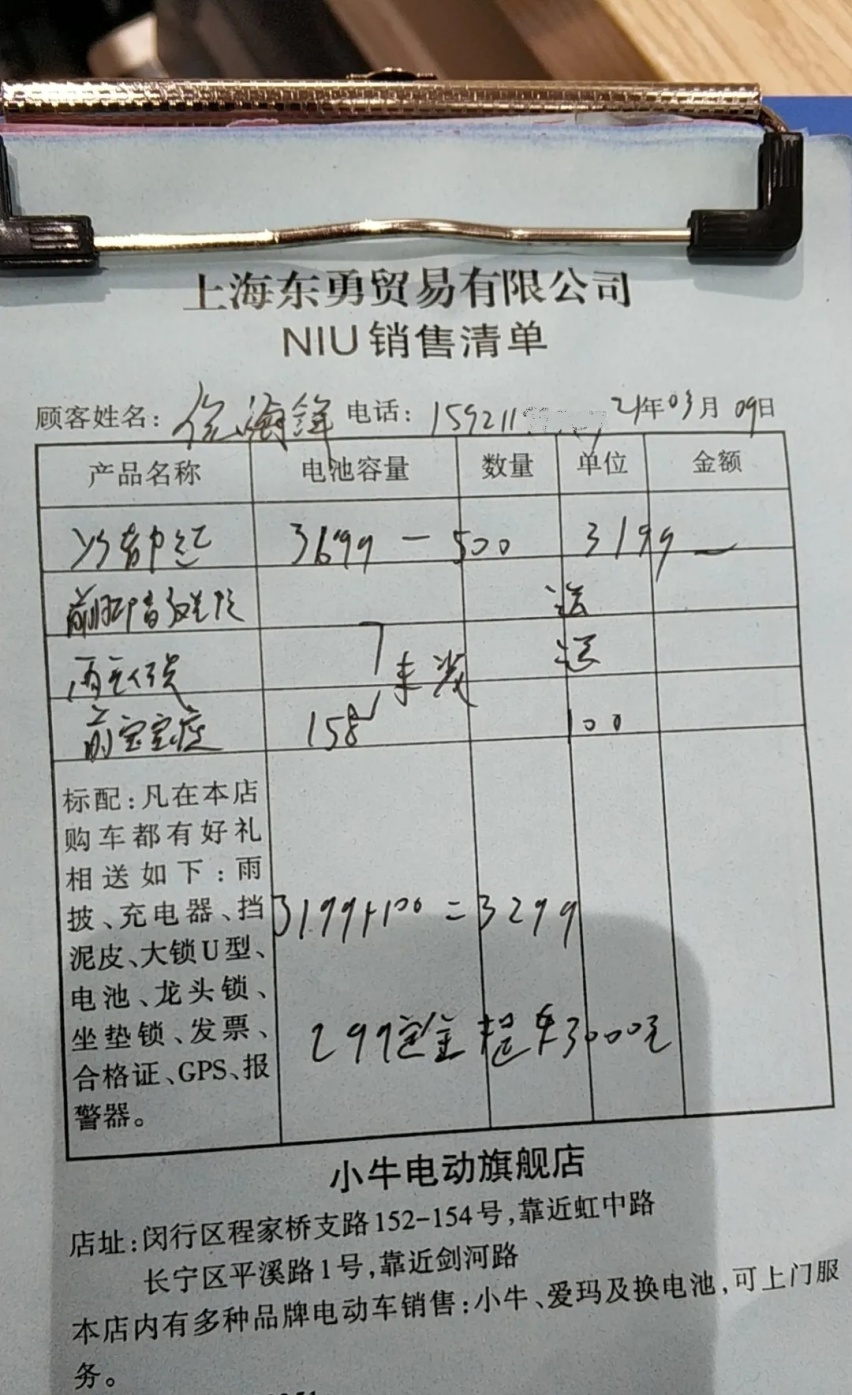 上海东勇贸易有限公司
NIU销售清单
顾客姓名: 电话: 159211 21年03月09日
产品名称 电池容量 数量 单位 金额
3699-500 3199
送
未装 送
前宝宝座 158 100
标配:凡在本店
购车都有好礼
相送如下:雨
披、充电器、挡
泥皮、大锁U型、
电池、龙头锁、
坐垫锁、发票、
合格证、GPS、报
警器。
3199+100=3299
299定金 提车3000元
小牛电动旗舰店
店址:闵行区程家桥支路152-154号,靠近虹中路
长宁区平溪路1号,靠近剑河路
本店内有多种品牌电动车销售:小牛、爱玛及换电池,可上门服
务。